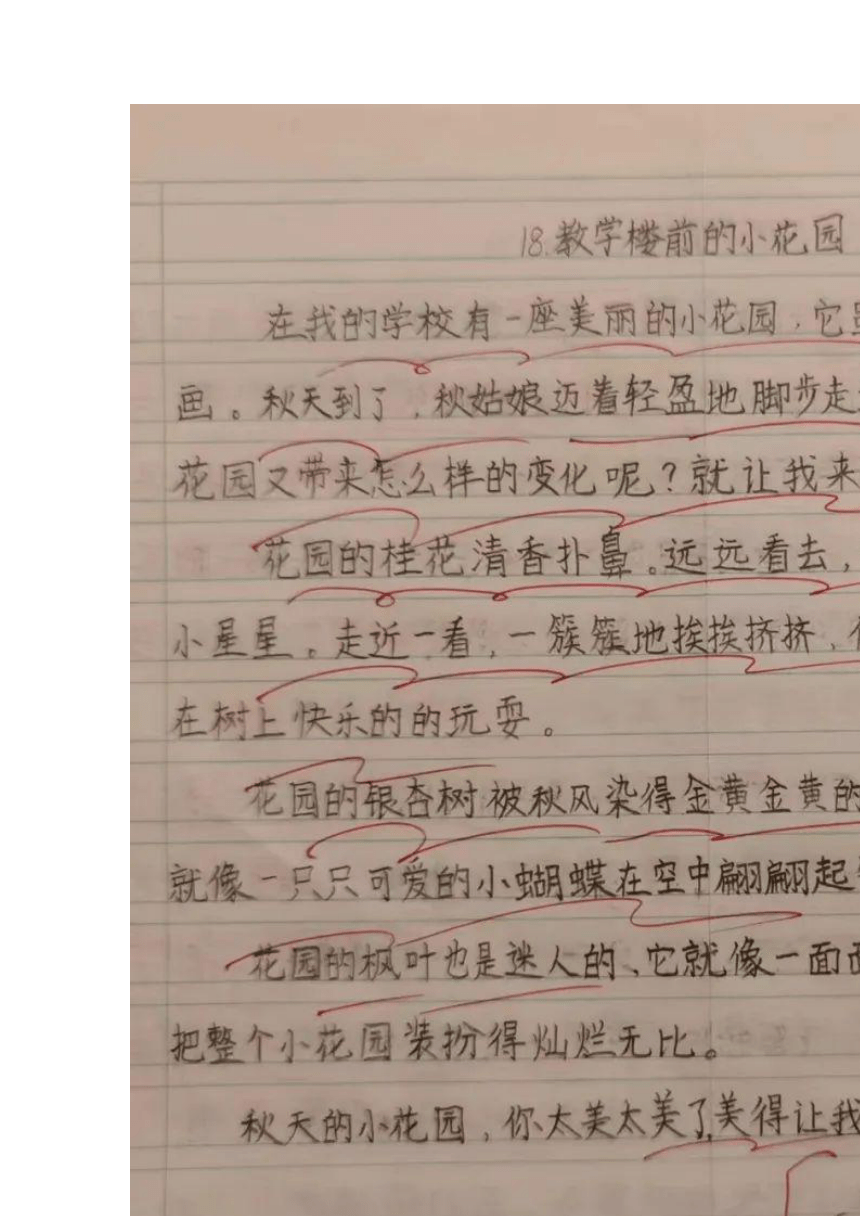 18.教学楼前的小花园
在我的学校有一座美丽的小花园，它
画。秋天到了，秋姑娘迈着轻盈地脚步走
花园又带来怎么样的变化呢？就让我来
花园的桂花清香扑鼻。远远看去，
小星星。走近一看，一簇簇地挨挨挤挤，
在树上快乐的的玩耍。
花园的银杏树被秋风染得金黄金黄的
就像一只只可爱的小蝴蝶在空中翩翩起
花园的枫叶也是迷人的、它就像一面面
把整个小花园装扮得灿烂无比。
秋天的小花园，你太美太美了，美得让我